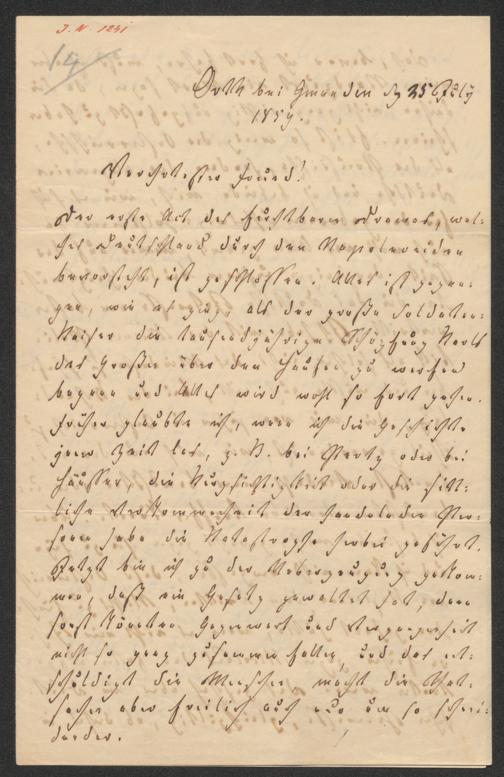 J. N. 1241
14
Orth bei Gmunden d 25 July
1859.
Verehrtester Freund!
Der erste Act des furchtbaren Dramas, wel-
ches Deutschland durch den Napoleoniden
bevorsteht, ist geschlossen. Alles ist gegan-
gen, wie es ging, als der große Soldaten-
Kaiser die tausendjährige Schöpfung Karls
des Großen über den Haufen zu werfen
begann und Alles wird wohl so fort gehen.
Früher glaubte ich, wenn ich die Geschichte
jener Zeit las, z. B. bei Pertz oder bei
Häusser, die Kurzsichtigkeit oder die sitt-
liche Verkommenheit der handelnden Per-
sonen habe die Katastrophe herbei geführt.
Jetzt bin ich zu der Ueberzeugung gekom-
men, daß ein Gesetz gewaltet hat, denn
sonst könnten Gegenwart und Vergangenheit
nicht so ganz zusammen fallen, und das ent-
schuldigt die Menschen, macht die That-
sachen aber freilich auch nur um so schnei-
dender.